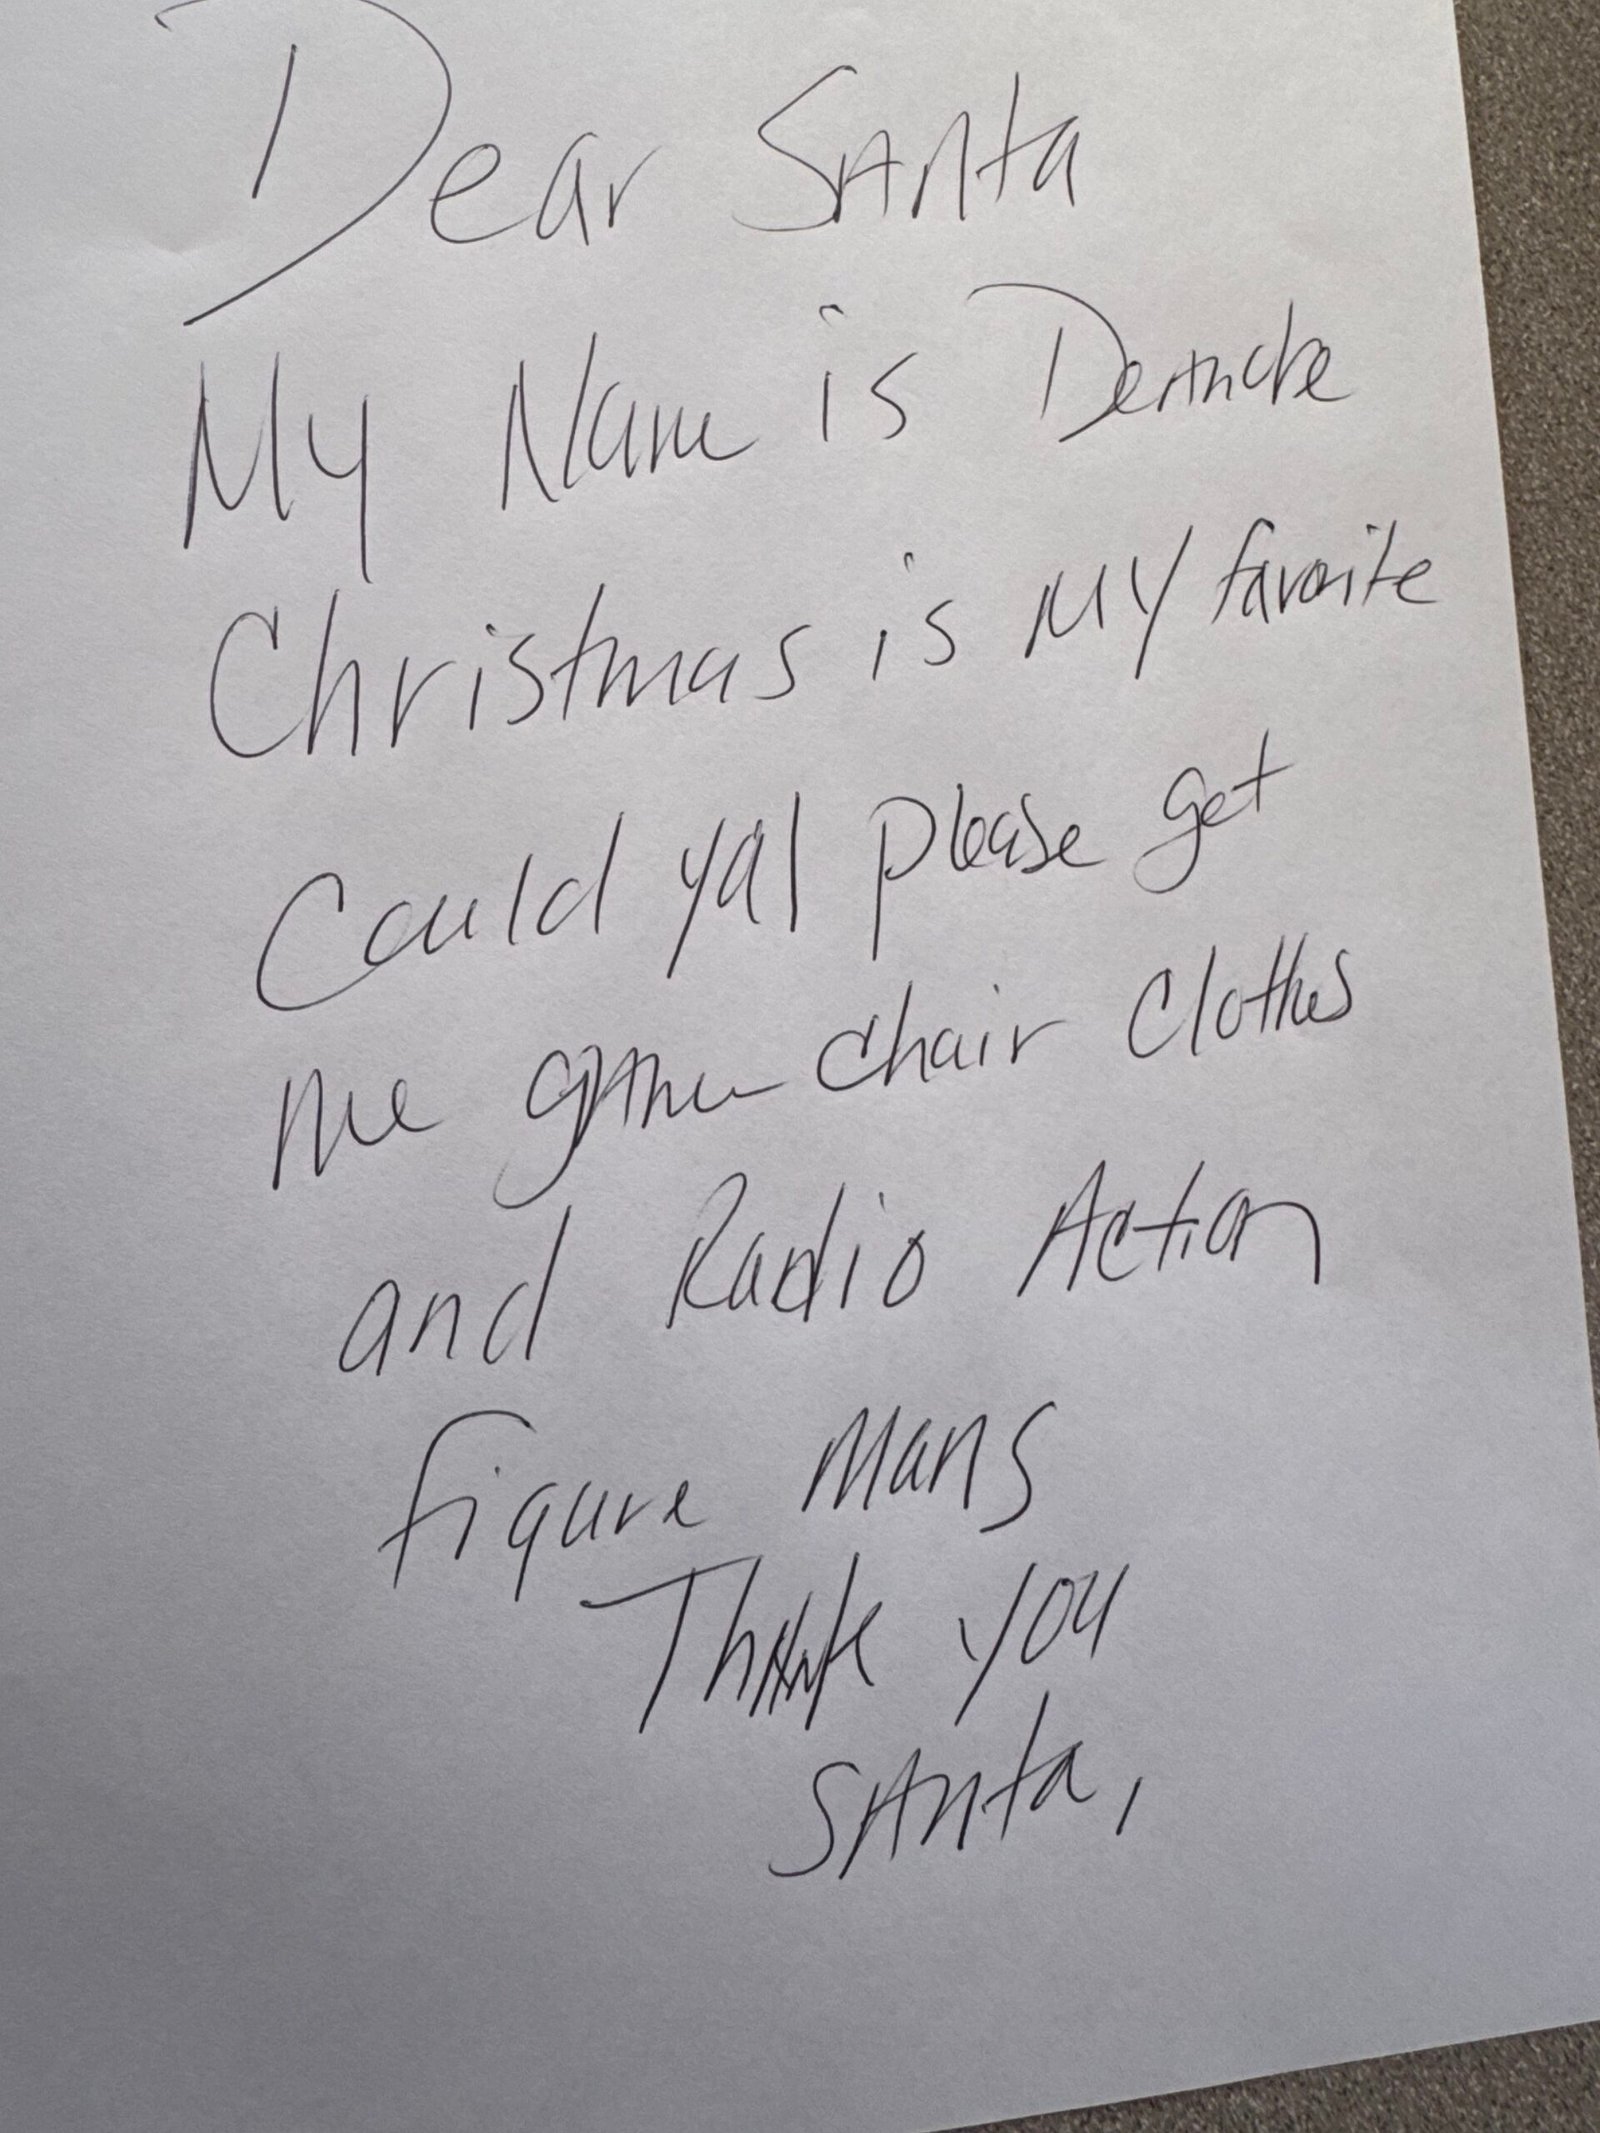 Dear Santa
My Name is
Christmas is My favorite
Could yal please get
me game chair Clothes
and Radio Action
figure mans
Thank you
Santa,